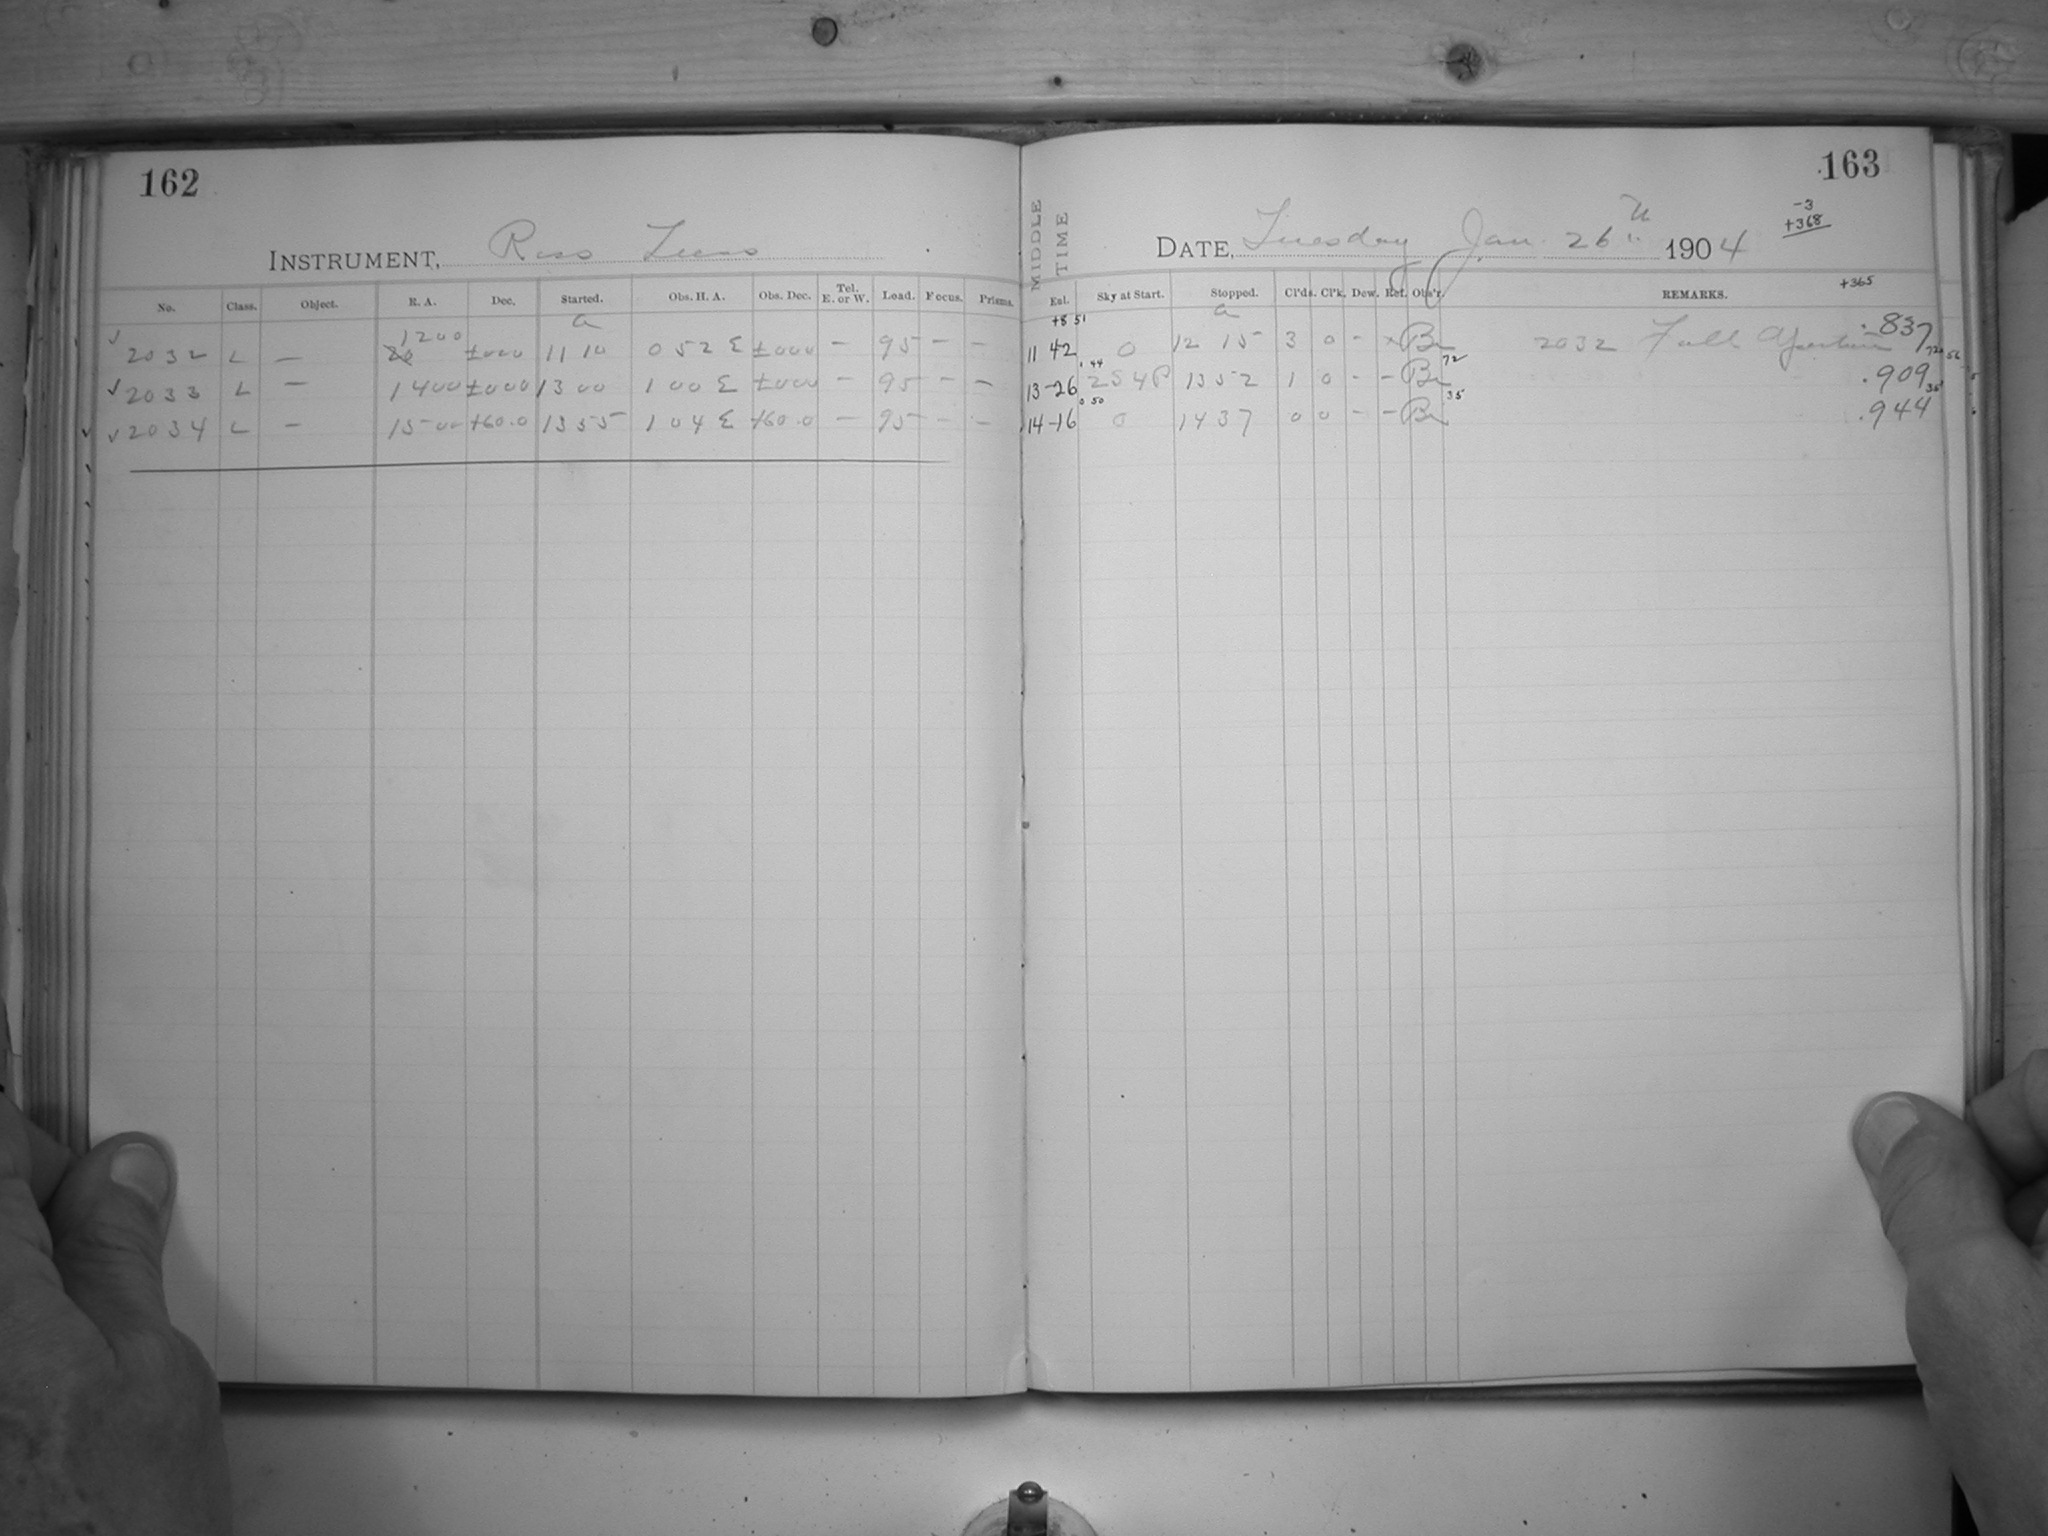 162
INSTRUMENT, Ross Lens
No. Class. Object. R. A. Dec. Started. Obs. H. A. Obs. Dec. Tel. E. or W. Load. Focus. Prisms.
a
1200
2032 L — ±000 11 10 0 52 E ±000 — 95 — —
2033 L — 1400 ±000 13 00 1 00 E ±000 — 95 — —
2034 L — 1500 +60.0 13 55 1 04 E +60.0 — 95 — —
163
MIDDLE TIME
-3
+368
DATE, Tuesday Jan. 26th 1904
+365
Est. Sky at Start. Stopped. Cl'ds. Cl'k. Dew. Ref. Obs'r. REMARKS.
+8 51 a
11 42 0 12 15 3 0 - Br 2032 Full Aperture .837
.44 72
13-26 254P 13 52 1 0 - - Br .909
0 50 35
14-16 0 14 37 0 0 - - Br .944